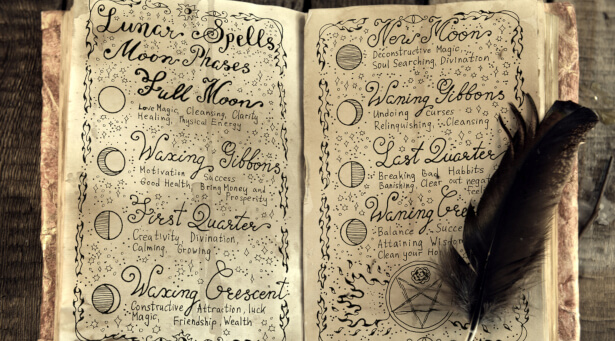 Lunar Spells
Moon Phases
Full Moon
Love Magic, Cleansing, Clarity
Healing, Physical Energy
Waxing Gibbons
Motivation Success
Good Health, Bring Money and
Prosperity
First Quarter
Creativity, Divination,
Calming, Growing
Waxing Crescent
Constructive Attraction, luck
Magic, Friendship, Wealth
New Moon
Deconstructive Magic,
Soul Searching, Divination
Waning Gibbons
Undoing Curses
Relinguishing, Cleansing
Last Quarter
Breaking Bad Habbits
Banishing, Clear out
Waning
Balance
Attaining
Clean your